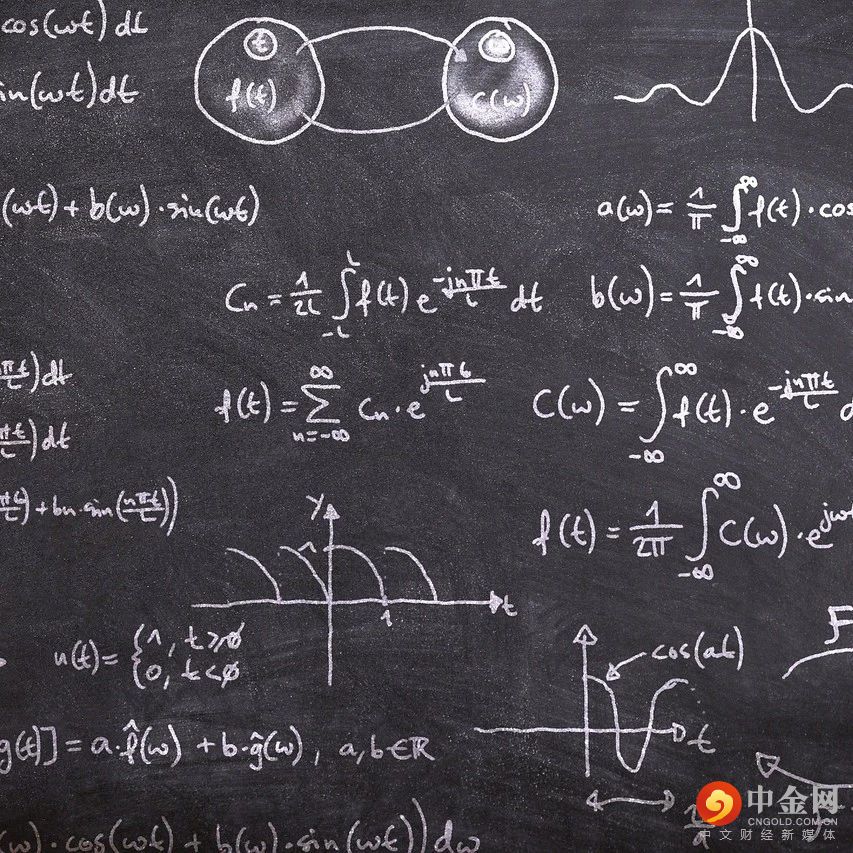 cos(ωt) dt
in(ωt)dt
t
f(t)
C(ω)
(ωt) + b(ω) · sin(ωt)
a(ω) = 1/π ∫_{-∞}^{∞} f(t) · cos
C_n = 1/2L ∫_{-L}^{L} f(t) e^{-jnπt/L} dt
b(ω) = 1/π ∫_{-∞}^{∞} f(t) · sin
nπt/L) dt
f(t) = ∑_{n=-∞}^{∞} C_n · e^{jnπt/L}
C(ω) = ∫_{-∞}^{∞} f(t) · e^{-jnπt/L} d
πt/L) dt
πt/L) + bn · sin(nπt/L))
f(t) = 1/2π ∫_{-∞}^{∞} C(ω) · e^{jωt
y
1
t
1
u(t) = {1, t≥0
0, t<0
cos(at)
F
t
g(t)] = a · f̂(ω) + b · ĝ(ω), a, b ∈ ℝ
(ω) · cos(ωt) + b(ω) · sin(ωt)) dω
中金网
CNGOLD.COM.CN
中文财经新媒体